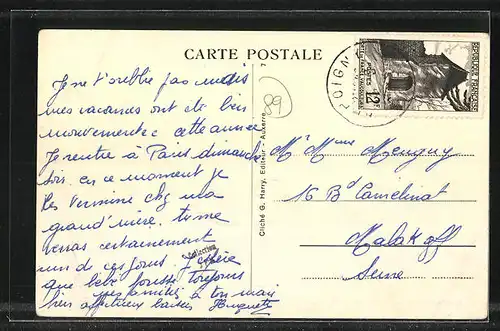 CARTE POSTALE
Je ne t'oublie pas mais
mes vacances ont été bien
mouvementée cette année
Je rentre à Paris dimanche
soir. en ce moment je
les termine chez ma
grand'mère. tu me
verras certainement
un de ces jours. J'espère
que bébé pousse toujours
bien
mes amitiés à ton mari
affectueux baisers Huguette
Cliché G. Harry, Editeur - Auxerre
89
JOIGN
REPUBLIQUE FRANÇAISE
POSTES
12F
Mr Mme Menguy
16 Bd Camelinat
Malakoff
Seine
Collection